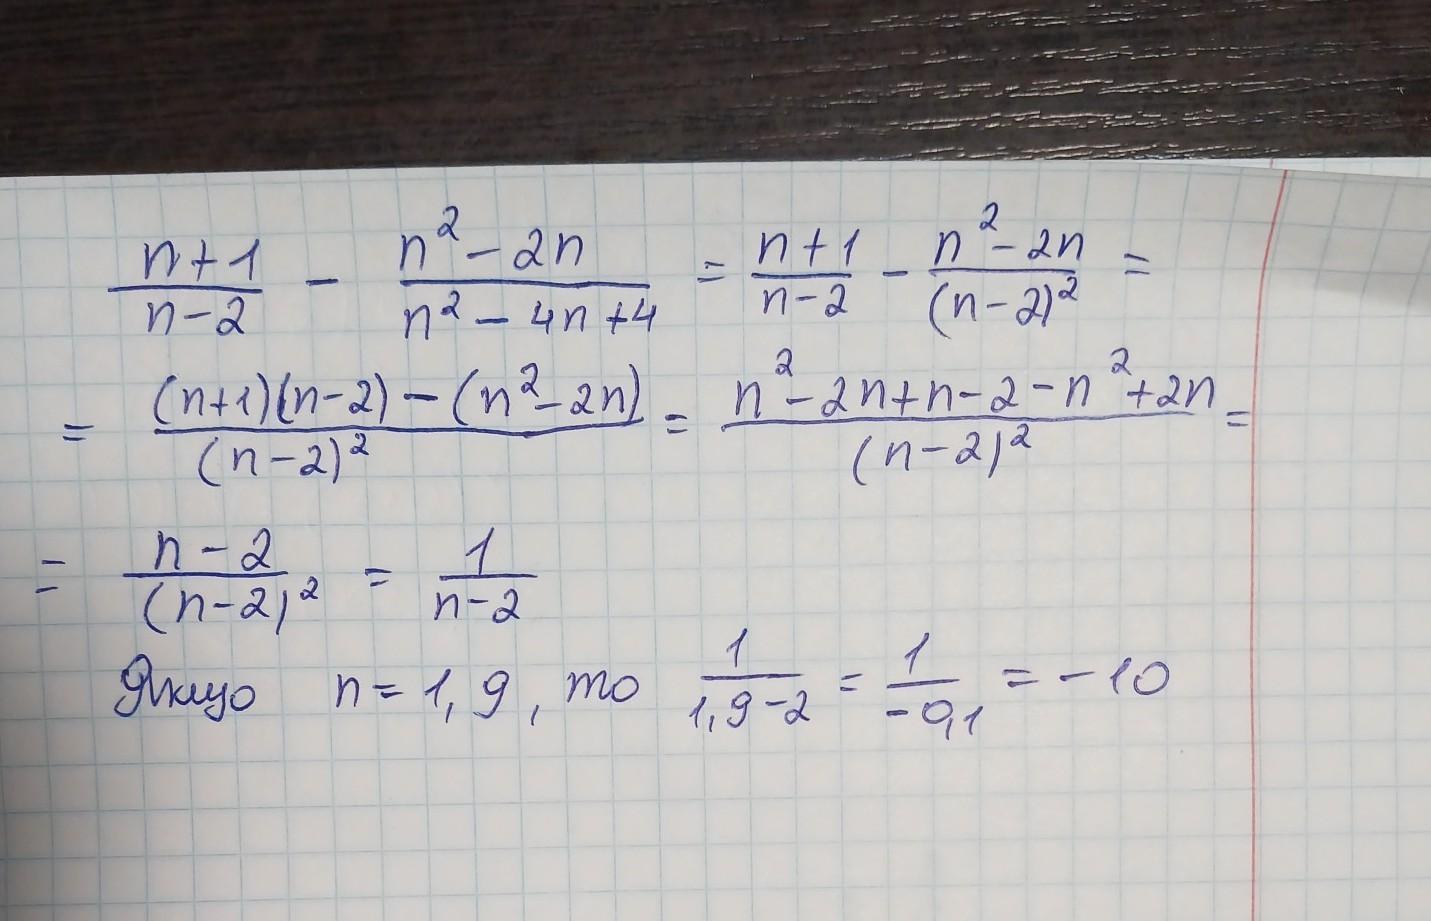 (n+1)/(n-2) - (n² - 2n)/(n² - 4n + 4) = (n+1)/(n-2) - (n² - 2n)/(n-2)² =
= ((n+1)(n-2) - (n² - 2n))/(n-2)² = (n² - 2n + n - 2 - n² + 2n)/(n-2)² =
= (n-2)/(n-2)² = 1/(n-2)
Якщо n = 1,9, то 1/(1,9-2) = 1/(-0,1) = -10